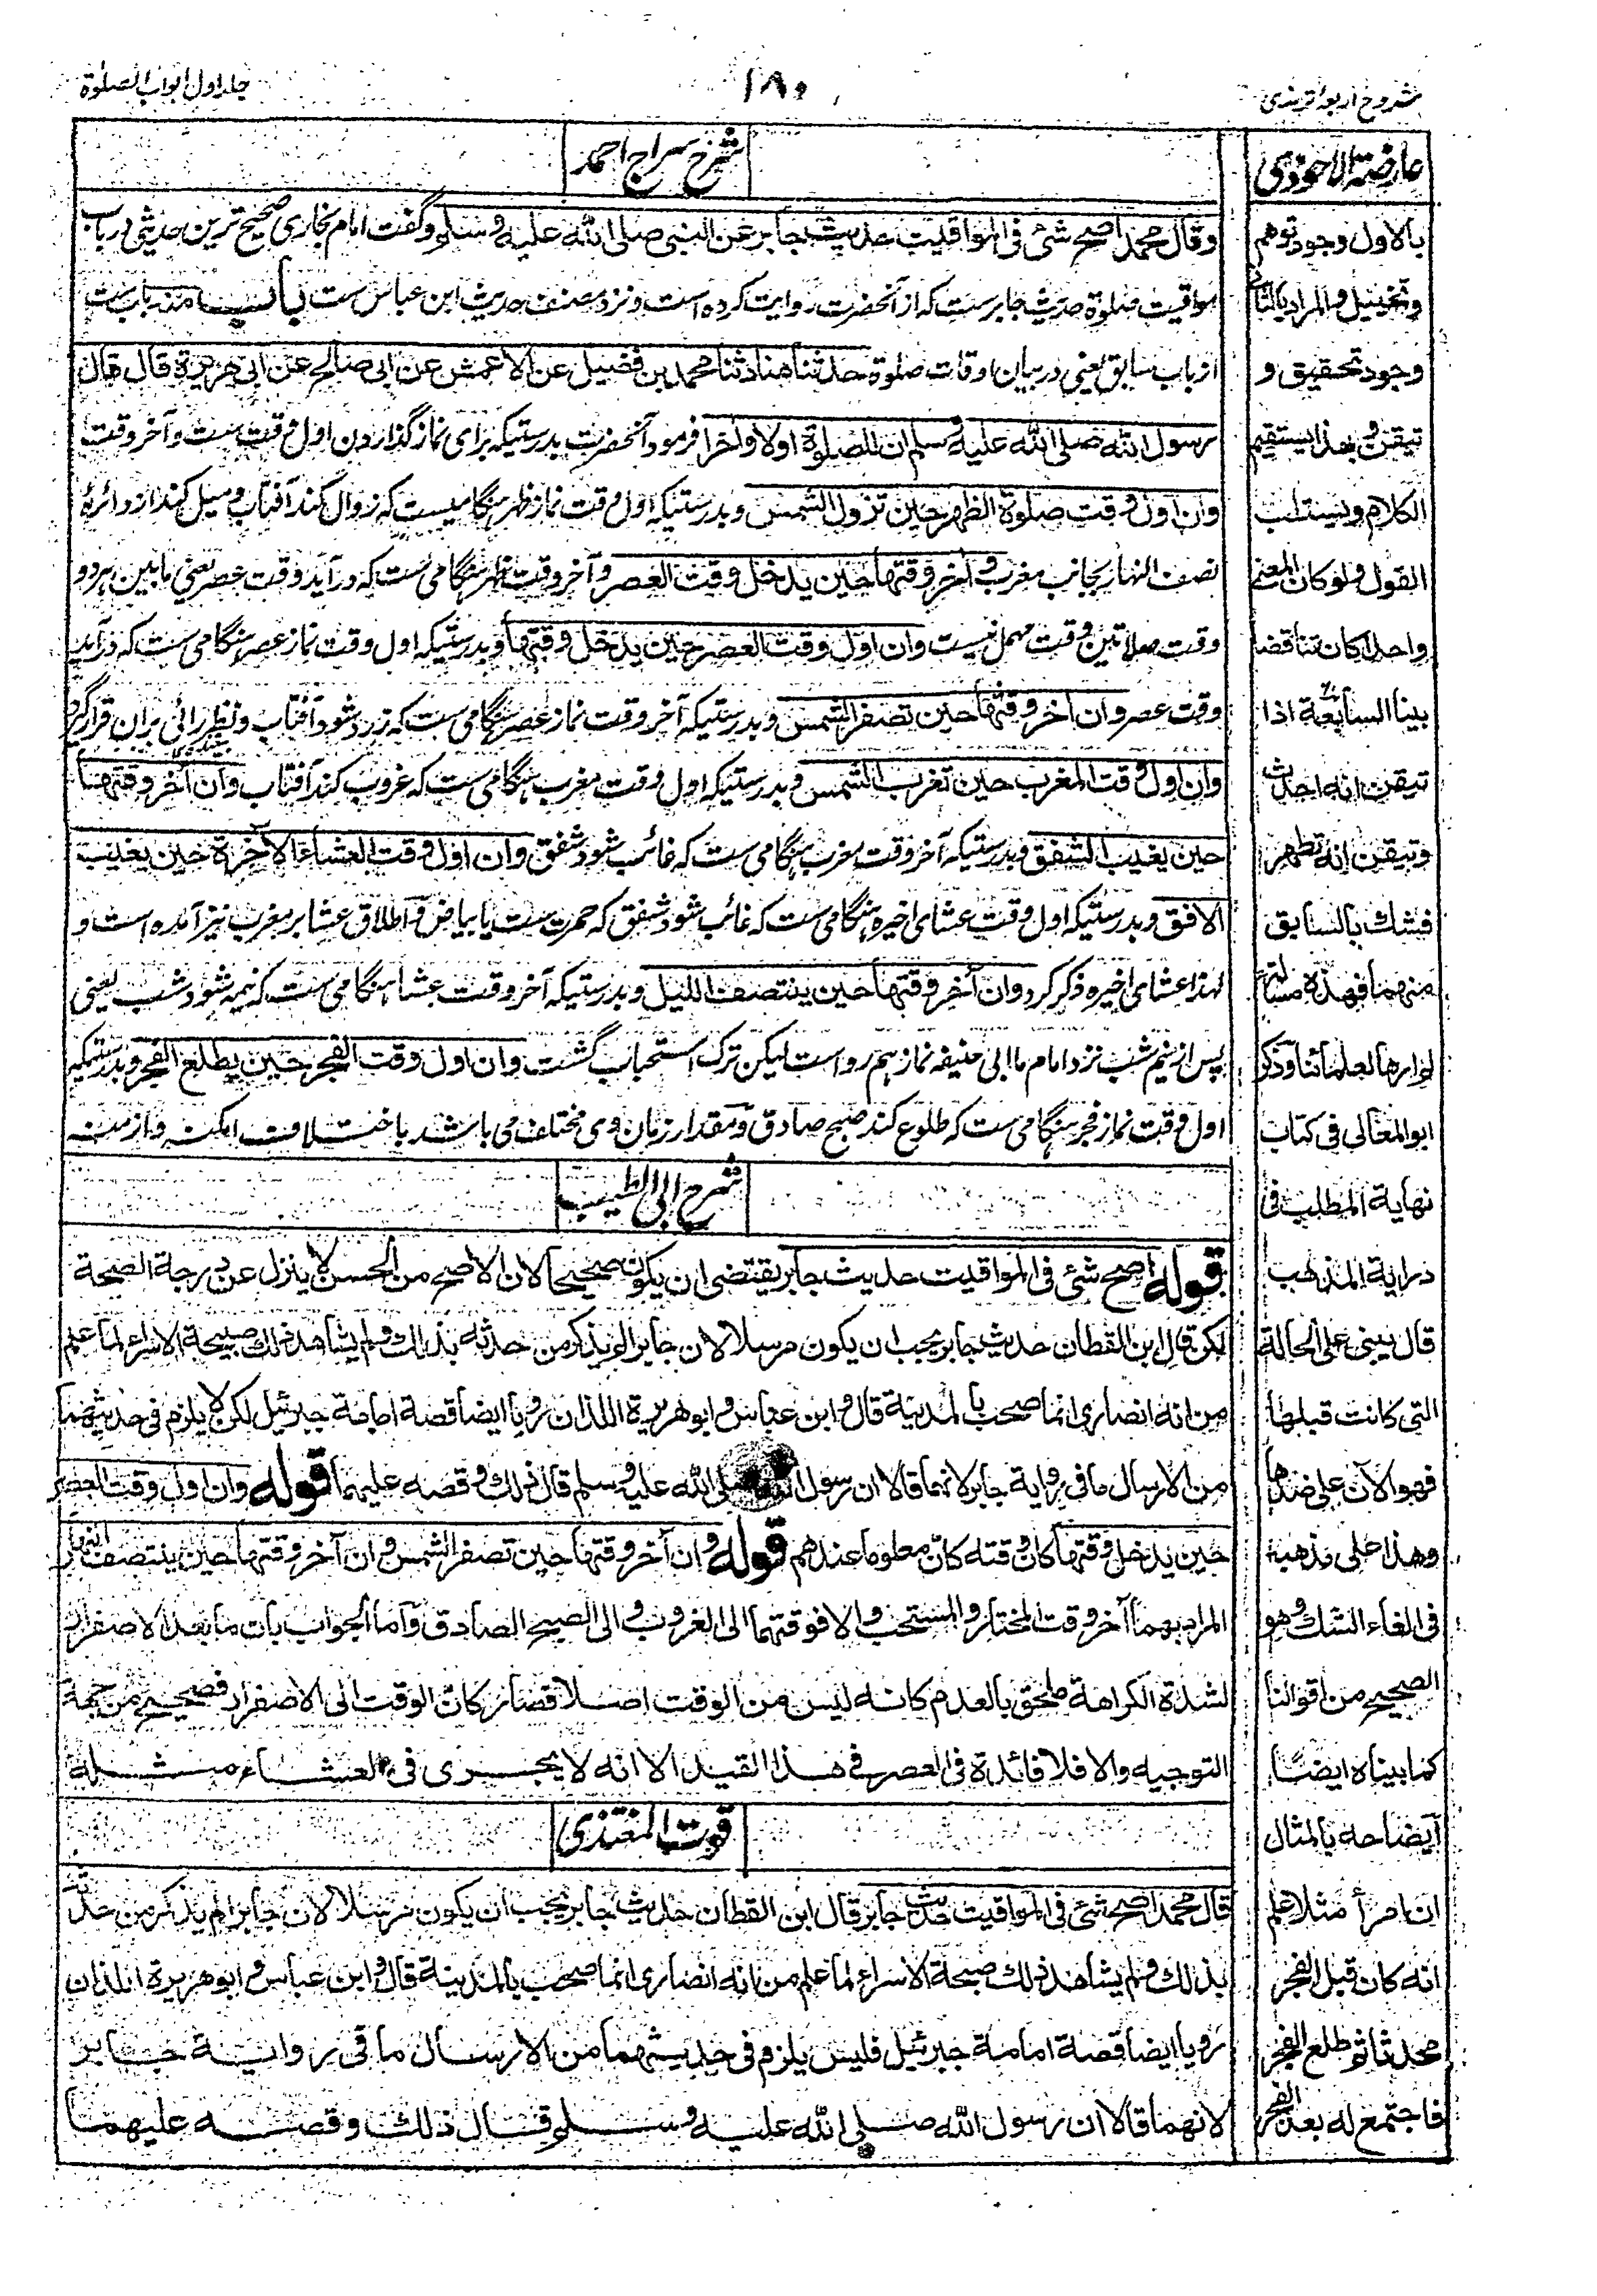 شروح اربعهٔ ترمذی
١٨٠
جلد اول ابواب الصلوٰة
عارضة الاحوذی
بالاول وجود توهم
وتخییل والمراد بالثانی
وجود تحقیق و
تیقن وبهذا یستقیم
الکلام ویستتب
القول ولو کان المعنی
واحدا کان تناقضا
بینا السابعة اذا
تیقن انه احدث
وتیقن انه تطهر
فشك بالسابق
منهما فهذه مسألة
لم ارها لعلمائنا وذکر
ابو المعالی فی کتاب
نهایة المطلب فی
درایة المذهب
قال یبنی علی الحالة
التی کانت قبلها
فهو الآن علی ضدها
وهذا علی مذهبه
فی الغاء الشك وهو
الصحیح من اقوالنا
کما بیناه ایضًا
ایضاحه بالمثال
ان امرأ مثلا علم
انه کان قبل الفجر
محدثا ثم طلع الفجر
فاجتمع له بعد الفجر
شرح سراج احمد
وقال محمد اصح شئ فی المواقیت حدیث جابر عن النبی صلی الله علیه وسلم وگفت امام بخاری صحیح ترین حدیثی در باب
مواقیت صلوٰة حدیث جابرست که از آنحضرت روایت کرده است ونزد مصنف حدیث ابن عباس ست باب منه باب ست
از باب سابق یعنی در بیان اوقات صلوٰة حدثنا هناد ثنا محمد بن فضیل عن الاعمش عن ابی صالح عن ابی هریرة قال قال
رسول الله صلی الله علیه وسلم ان للصلوٰة اولا واخرا فرمود آنحضرت بدرستیکه برای نماز گذاردن اول وقت ست وآخر وقت
وان اول وقت صلوٰة الظهر حین تزول الشمس وبدرستیکه اول وقت نماز ظهر هنگامیست که زوال کند آفتاب ومیل کند از دائرۂ
نصف النهار بجانب مغرب واٰخر وقتها حین یدخل وقت العصر وآخر وقت ظهر هنگامی ست که در آید وقت عصر یعنی مابین هر دو
وقت صلاتین وقت مهمل نیست وان اول وقت العصر حین یدخل وقتها وبدرستیکه اول وقت نماز عصر هنگامی ست که در آید
وقت عصر وان اٰخر وقتها حین تصفر الشمس وبدرستیکه آخر وقت نماز عصر هنگامی ست که زرد شود آفتاب ونظر رائی بران قرار گیرد
وان اول وقت المغرب حین تغرب الشمس وبدرستیکه اول وقت مغرب هنگامی ست که غروب کند آفتاب وان اٰخر وقتها
حین یغیب الشفق وبدرستیکه آخر وقت مغرب هنگامی ست که غائب شود شفق وان اول وقت العشاء الاٰخرة حین یغیب
الافق وبدرستیکه اول وقت عشای اخیره هنگامی ست که غائب شود شفق که حمرت ست یا بیاض واطلاق عشا بر مغرب نیز آمده است و
لهذا عشای اخیره ذکر کرد وان اٰخر وقتها حین ینتصف اللیل وبدرستیکه آخر وقت عشا هنگامی ست که نیمه شود شب یعنی
پس از نیم شب نزد امام ما ابی حنیفه نماز هم رواست لیکن ترك استحباب گشت وان اول وقت الفجر حین یطلع الفجر وبدرستیکه
اول وقت نماز فجر هنگامی ست که طلوع کند صبح صادق ومقدار زمان وی مختلف می باشد باختلاف امکنه وازمنه
شرح ابی الطیب
قوله اصح شئ فی المواقیت حدیث جابر یقتضی ان یکون صحیحا لان الاصح من الحسن لا ینزل عن درجة الصحة
لکن قال ابن القطان حدیث جابر یجب ان یکون مرسلا لان جابرا لم یذکر من حدثه بذلك ولم یشاهد ذلك صبیحة الاسراء لما علم
من انه انصاری انما صحب بالمدینة قال وابن عباس وابو هریرة اللذان رویا ایضا قصة امامة جبرئیل لکن لا یلزم فی حدیثهما
من الارسال ما فی روایة جابر لانهما قالا ان رسول الله صلی الله علیه وسلم قال ذلك وقصه علیهما قوله وان اول وقت العصر
حین یدخل وقتها کان وقته کان معلوما عندهم قوله وان آخر وقتها حین تصفر الشمس وان آخر وقتها حین ینتصف
المراد بهما آخر وقت المختار والمستحب والا فوقتهما الی الغروب والی الصبح الصادق وأما الجواب بات ما بعد الاصفرار
لشدة الکراهة ملحق بالعدم کانه لیس من الوقت اصلا فصار کان الوقت الی الاصفرار فصحیح من جهة
التوجیه والا فلا فائدة فی العصر فی هذا القید الا انه لا یجری فی العشاء مثله
قوت المغتذی
قال محمد اصح شئ فی المواقیت حدیث جابر قال ابن القطان حدیث جابر یجب ان یکون مرسلا لان جابرا لم یذکر من حدثه
بذلك ولم یشاهد ذلك صبحة الاسراء لما علم من انه انصاری انما صحب بالمدینة قال وابن عباس وابو هریرة اللذان
رویا ایضا قصة امامة جبرئیل فلیس یلزم فی حدیثهما من الارسال ما فی روایة جابر
لانهما قالا ان رسول الله صلی الله علیه وسلم قال ذلك وقصه علیهما